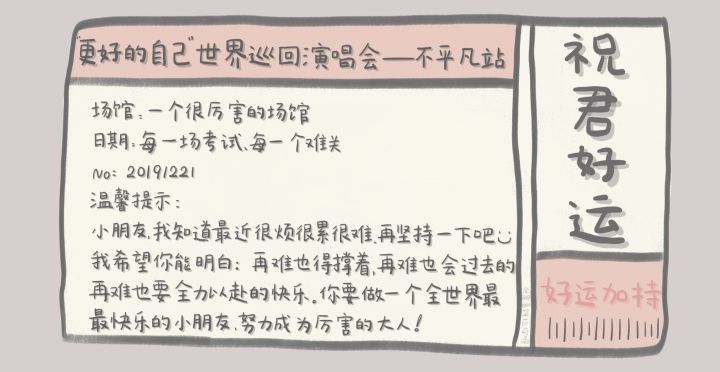 "更好的自己"世界巡回演唱会——不平凡站
场馆:一个很厉害的场馆
日期:每一场考试、每一个难关
No: 20191221
温馨提示:
小朋友,我知道最近很烦很累很难,再坚持一下吧
我希望你能明白:再难也得撑着,再难也会过去的
再难也要全力以赴的快乐。你要做一个全世界最
最快乐的小朋友,努力成为厉害的大人!
祝君好运
好运加持